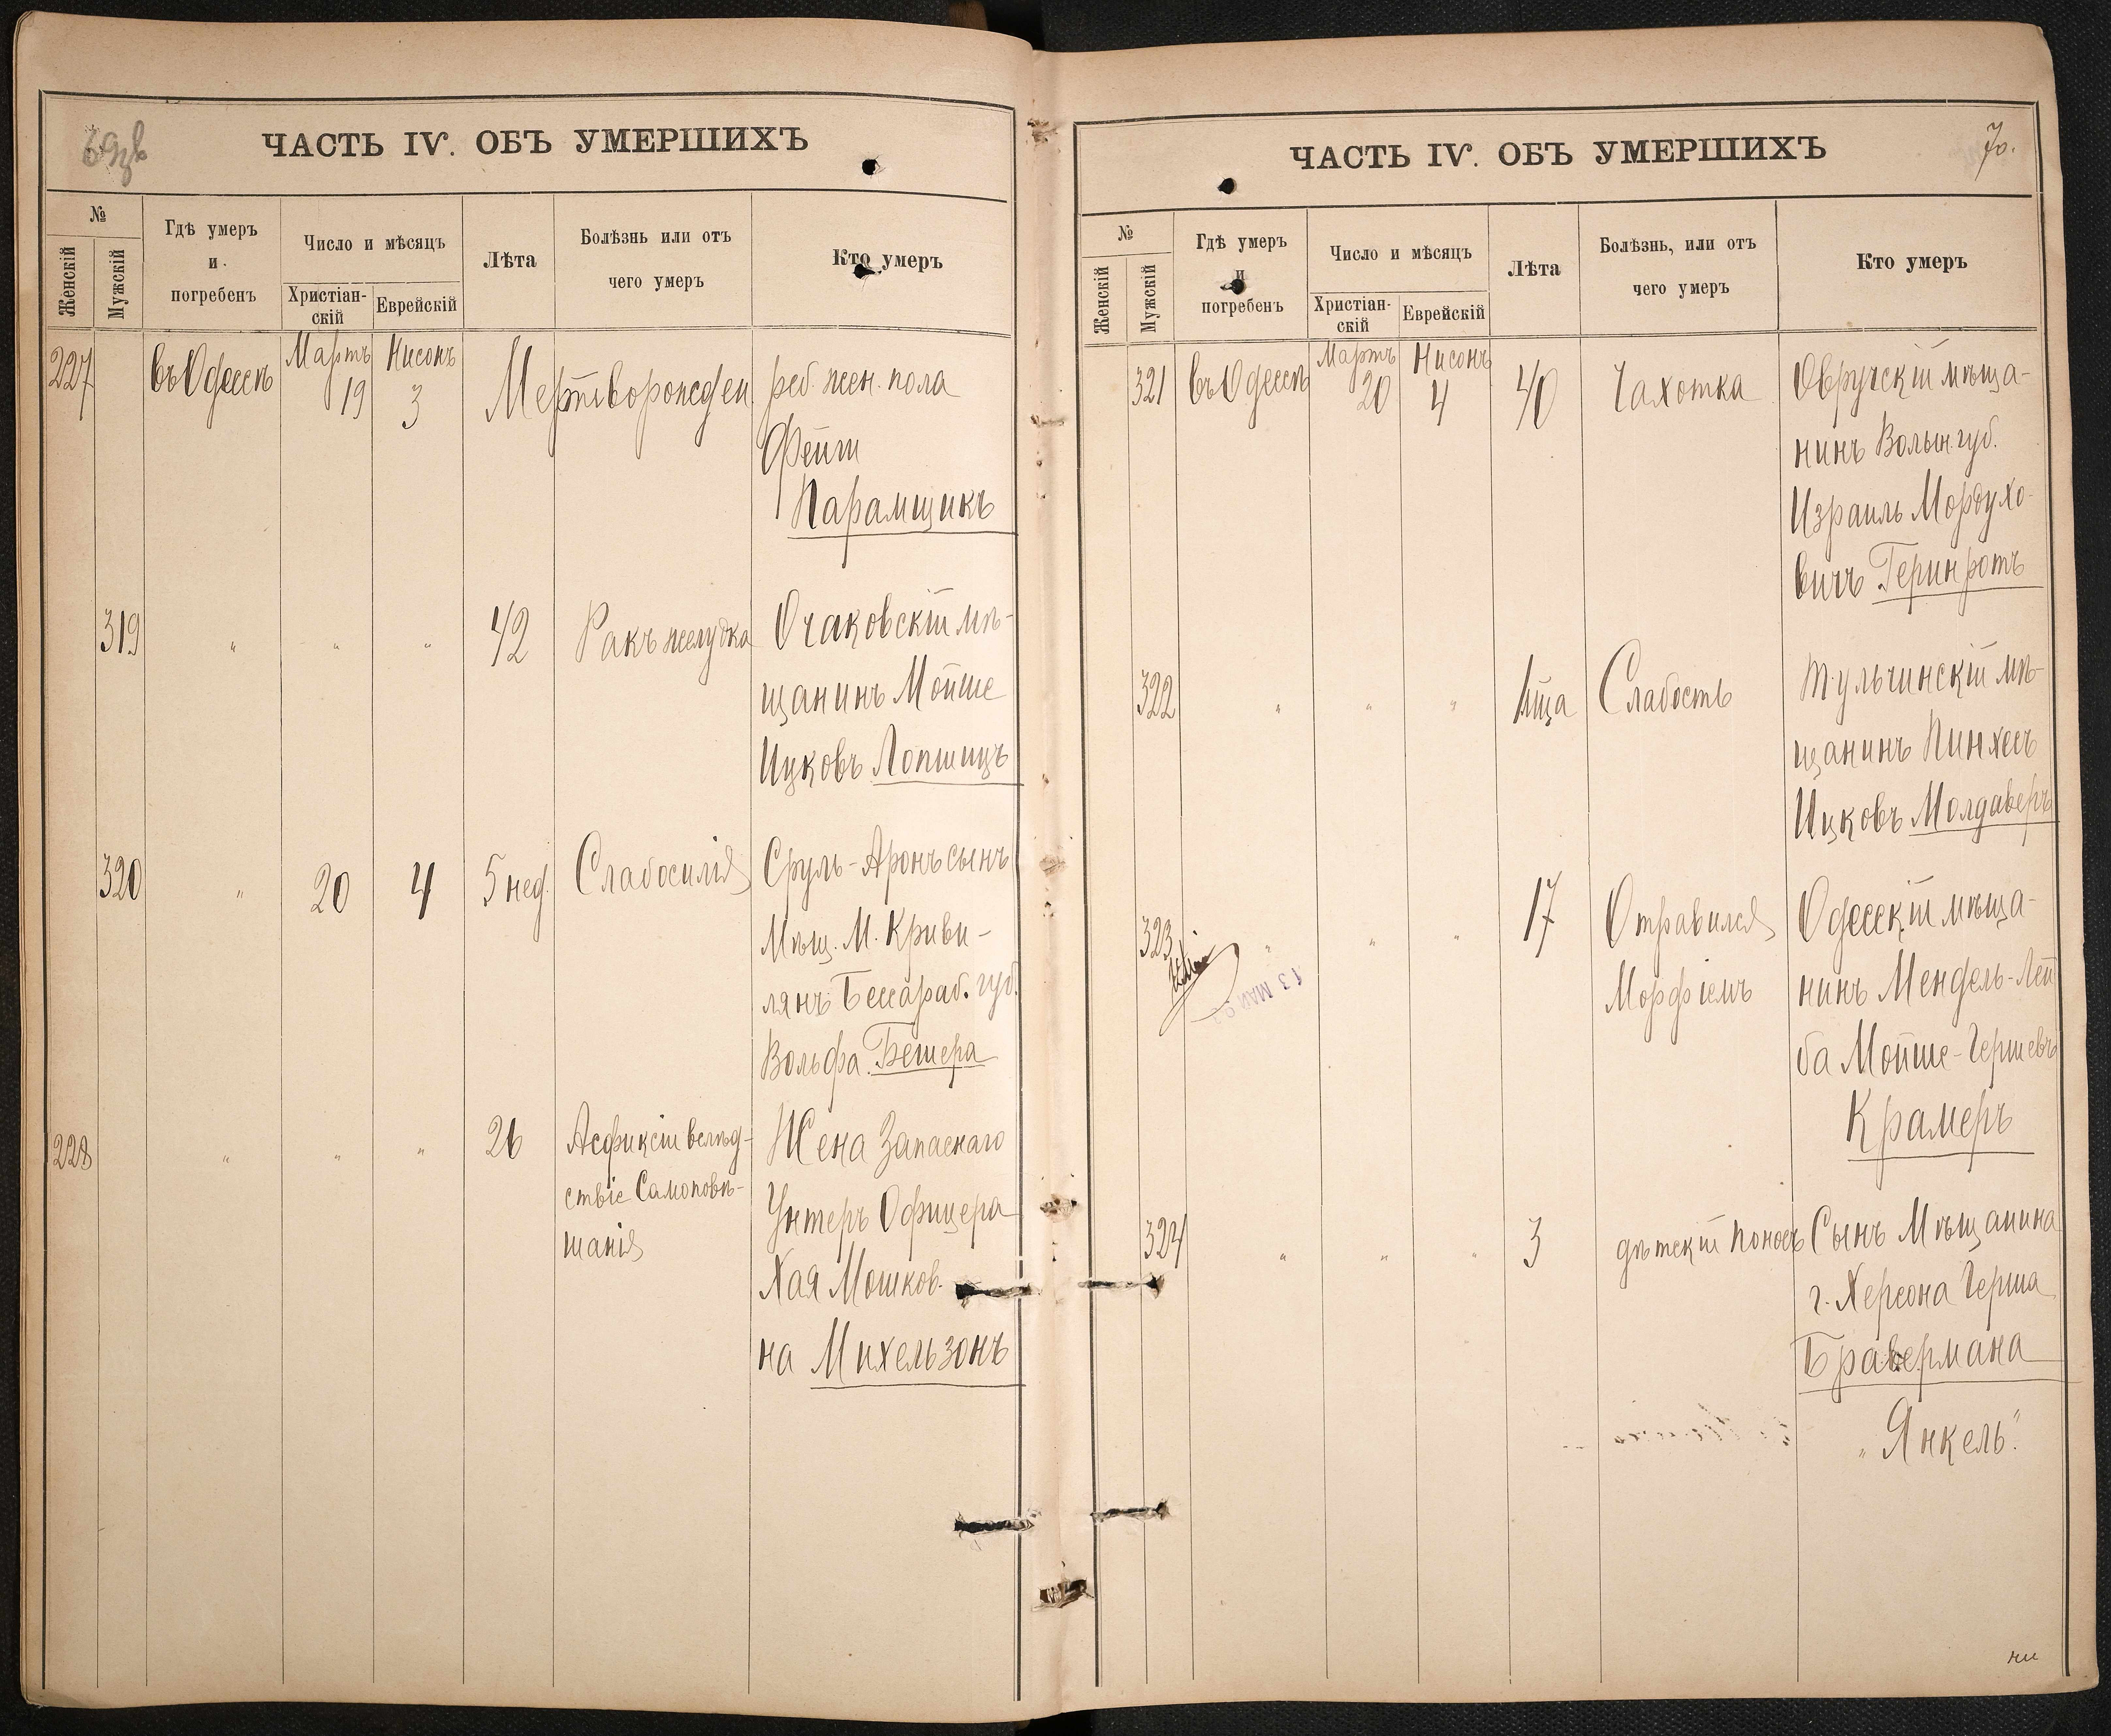 ЧАСТЬ IV. ОБЪ УМЕРШИХЪ
№
Женскій
Мужскій
Гдѣ умеръ
и
погребенъ
Число и мѣсяцъ
Христіан-
скій
Еврейскій
Лѣта
Болѣзнь или отъ
чего умеръ
Кто умеръ
227
въ Одессѣ
Мартъ
19
Нисонъ
3
Мертворожден.
реб. жен. пола
Фейги
Парамщикъ
319
"
"
"
42
Ракъ желудка
Очаковскій мѣ-
щанинъ Мойше
Ицковъ Лопшицъ
320
"
20
4
5 нед.
Слабосилія
Сруль-Аронъ сынъ
Мѣщ. М. Криви-
лянъ Бессараб. губ.
Вольфа Бешера
228
"
"
"
26
Асфиксіи вслѣд-
ствіе Самоповѣ-
шанія
Жена Запаснаго
Унтеръ Офицера
Хая Мошков-
на Михельзонъ
ЧАСТЬ IV. ОБЪ УМЕРШИХЪ
70.
№
Женскій
Мужскій
Гдѣ умеръ
и
погребенъ
Число и мѣсяцъ
Христіан-
скій
Еврейскій
Лѣта
Болѣзнь, или отъ
чего умеръ
Кто умеръ
321
въ Одессѣ
Мартъ
20
Нисонъ
4
40
Чахотка
Овручскій мѣща-
нинъ Волын. губ.
Израиль Мордухо-
вичъ Геринротъ
322
"
"
"
1 мца
Слабость
Тульчинскій мѣ-
щанинъ Пинхесъ
Ицковъ Молдаверъ
323
"
"
"
17
Отравился
Морфіемъ
Одесскій мѣща-
нинъ Мендель-Лей
ба Мойше-Гершевъ
Крамеръ
13 МАЙ
324
"
"
"
3
дѣтскій поносъ
Сынъ Мѣщанина
г. Херсона Герша
Бравермана
"Янкель".